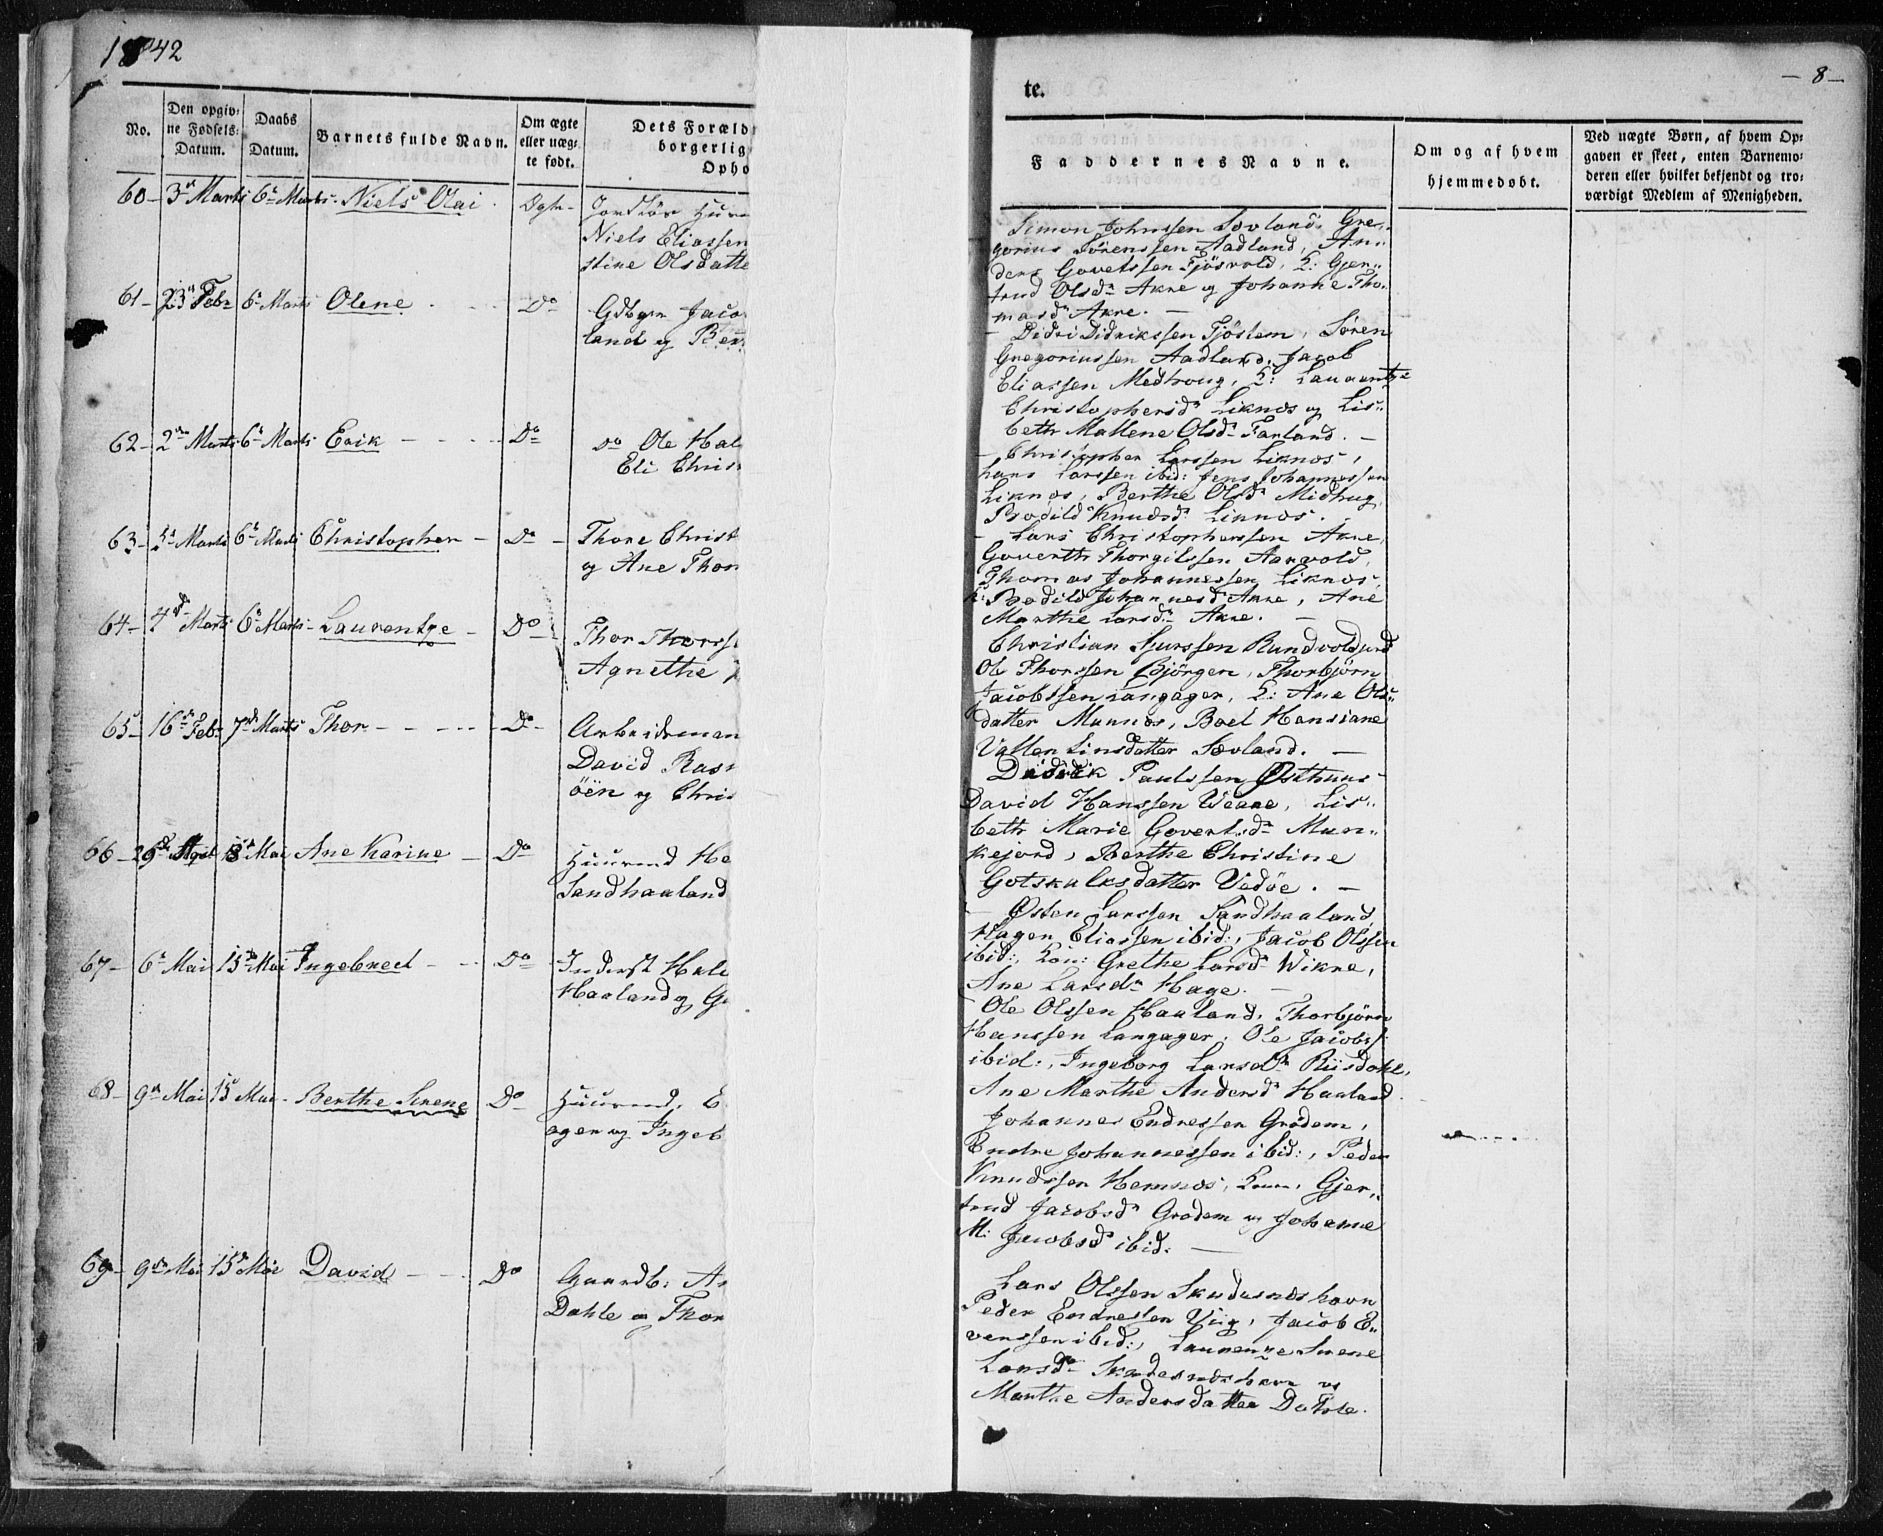 1842
No.
Den opgiv-
ne Fødsels-
Datum.
Daabs
Datum.
Barnets fulde Navn.
Om ægte
eller uæg-
te født.
Dets Foræld
borgerlig
Opho
60 - 3 Marts 6 Marts. Niels Olai.
Niels Eliassen
stine Olsdatte
61 - 23 Feb 6 Marts Olene - Do
Gdbgr Jaco
land og Ber
62 - 2 Marts 6 Marts Erik - - - Do
do Ole Hal
Eli Chris
63 - Marts 6 Marts Christopher - Do -
Thore Christ
og Ane Thor
64 - 4 Marts 6 Marts - Laurentze - Do
Thor Thorss
Agnethe
65 - 16 Feb 7 Marts Thor - - - - Do -
Arbeidsman
David Ras
öen og Chris
66 - 29 April 15 Mai Ane Karine - Do
Huusmd He
Sandhaaland
67 - 6 Mai 15 Mai Ingebrect - - Do
Inderst Hal
Haaland og G
68 - 9 Mai 15 Mai - Berthe Serene Do
Huusmd. E
ager og Ingeb
69 - 9 Mai 15 Mai David - - Do
Gaardb: A
Dahle og Thor
te.
- 8 -
Faddernes Navne.
Om og af hvem
hjemmedøbt.
Ved uægte Børn, af hvem Op-
gaven er skeet, enten Barnemo-
deren eller hvilket bekjendt og tro-
værdigt Medlem af Menigheden.
Simon Johnssen Sovland, Gre-
gorius Sørenssen Aadland, An-
ders Govetssen Fjösvold, K: Gjer-
trud Olsd Akre og Johanne Tho-
masd Akre. -
Didrikssen Tjöstem, Søren
Gregoriussen Aadland, Jacob
Eliassen Medhoug, K: Lauurentze
Christophersd Liknos og Lis-
beth Mallene Olsd Farland. -
- Christopher Larssen Liknos,
Lars Larssen ibid: Jens Johannessen
Liknos, Berthe Olsd Midhug
Bodild Knudsd Liknos. -
- Lars Christopherssen Akre,
Gouerth Thorgilssen Aarvold,
Thomas Johannessen Liknos,
K: Bodild Johannesd Akre, Ane
Marthe Larsd Akre. -
Christian Sjurssen Rundvoldsund
Ole Thorssen Bjørgen, Thorbjørn
Jacobssen Langager, K: Ane Ols-
datter Munnos, Boel Hansiane
Vallentinsdatter Sævland. -
Didrik Paulssen Østhuus
David Hanssen Weare, Lis-
beth Marie Govertsd Mun-
kejord, Berthe Christine
Gotskalksdatter Vedöe. -
- Østen Larssen Sandhaaland,
Hagen Eliassen ibid:, Jacob Olssen
ibid:, Grethe Larsd Wikre,
Ane Larsd Hage. -
Ole Olssen Haaland, Thorbjørn
Hanssen Langager, Ole Jacobs
ibid:, Ingeborg Larsd Riisdahl,
Ane Marthe Andersd Haaland.
Johannes Endressen Grödem,
Endre Johannessen ibid:, Peder
Knudssen Hemnos, Gjer-
trud Jacobsd Grödem og Johanne
M: Jacobsd ibid: -
Lars Olssen Skudesnæshavn
Peder Endressen Viig, Jacob E-
venssen ibid:, Laurenze Serene
Larsd Skudesnæshavn og
Marthe Andersdatter Dahle.